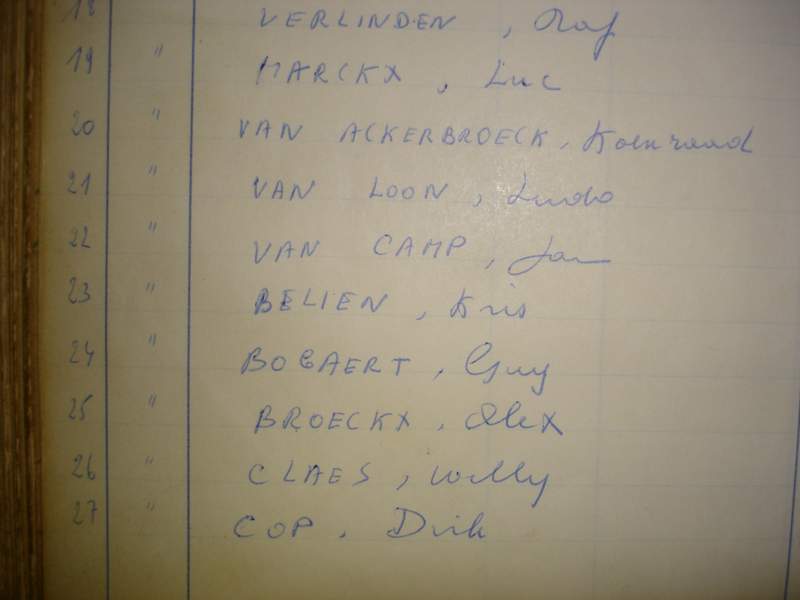 18 VERLINDEN, Raf
19 " MARCKX, Luc
20 " VAN ACKERBROECK, Koenraad
21 " VAN LOON, Ludo
22 " VAN CAMP, Jan
23 " BELIEN, Kris
24 " BOGAERT, Guy
25 " BROECKX, Alex
26 " CLAES, Willy
27 " COP, Dirk